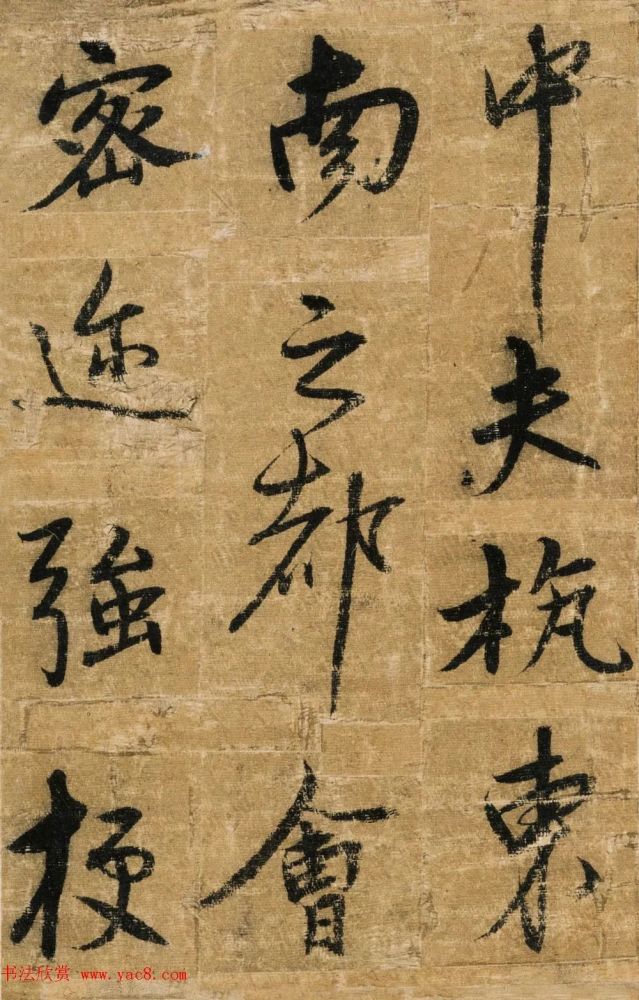 中夫杭東
南之都會
密迩強梗
书法欣赏 www.yac8.com